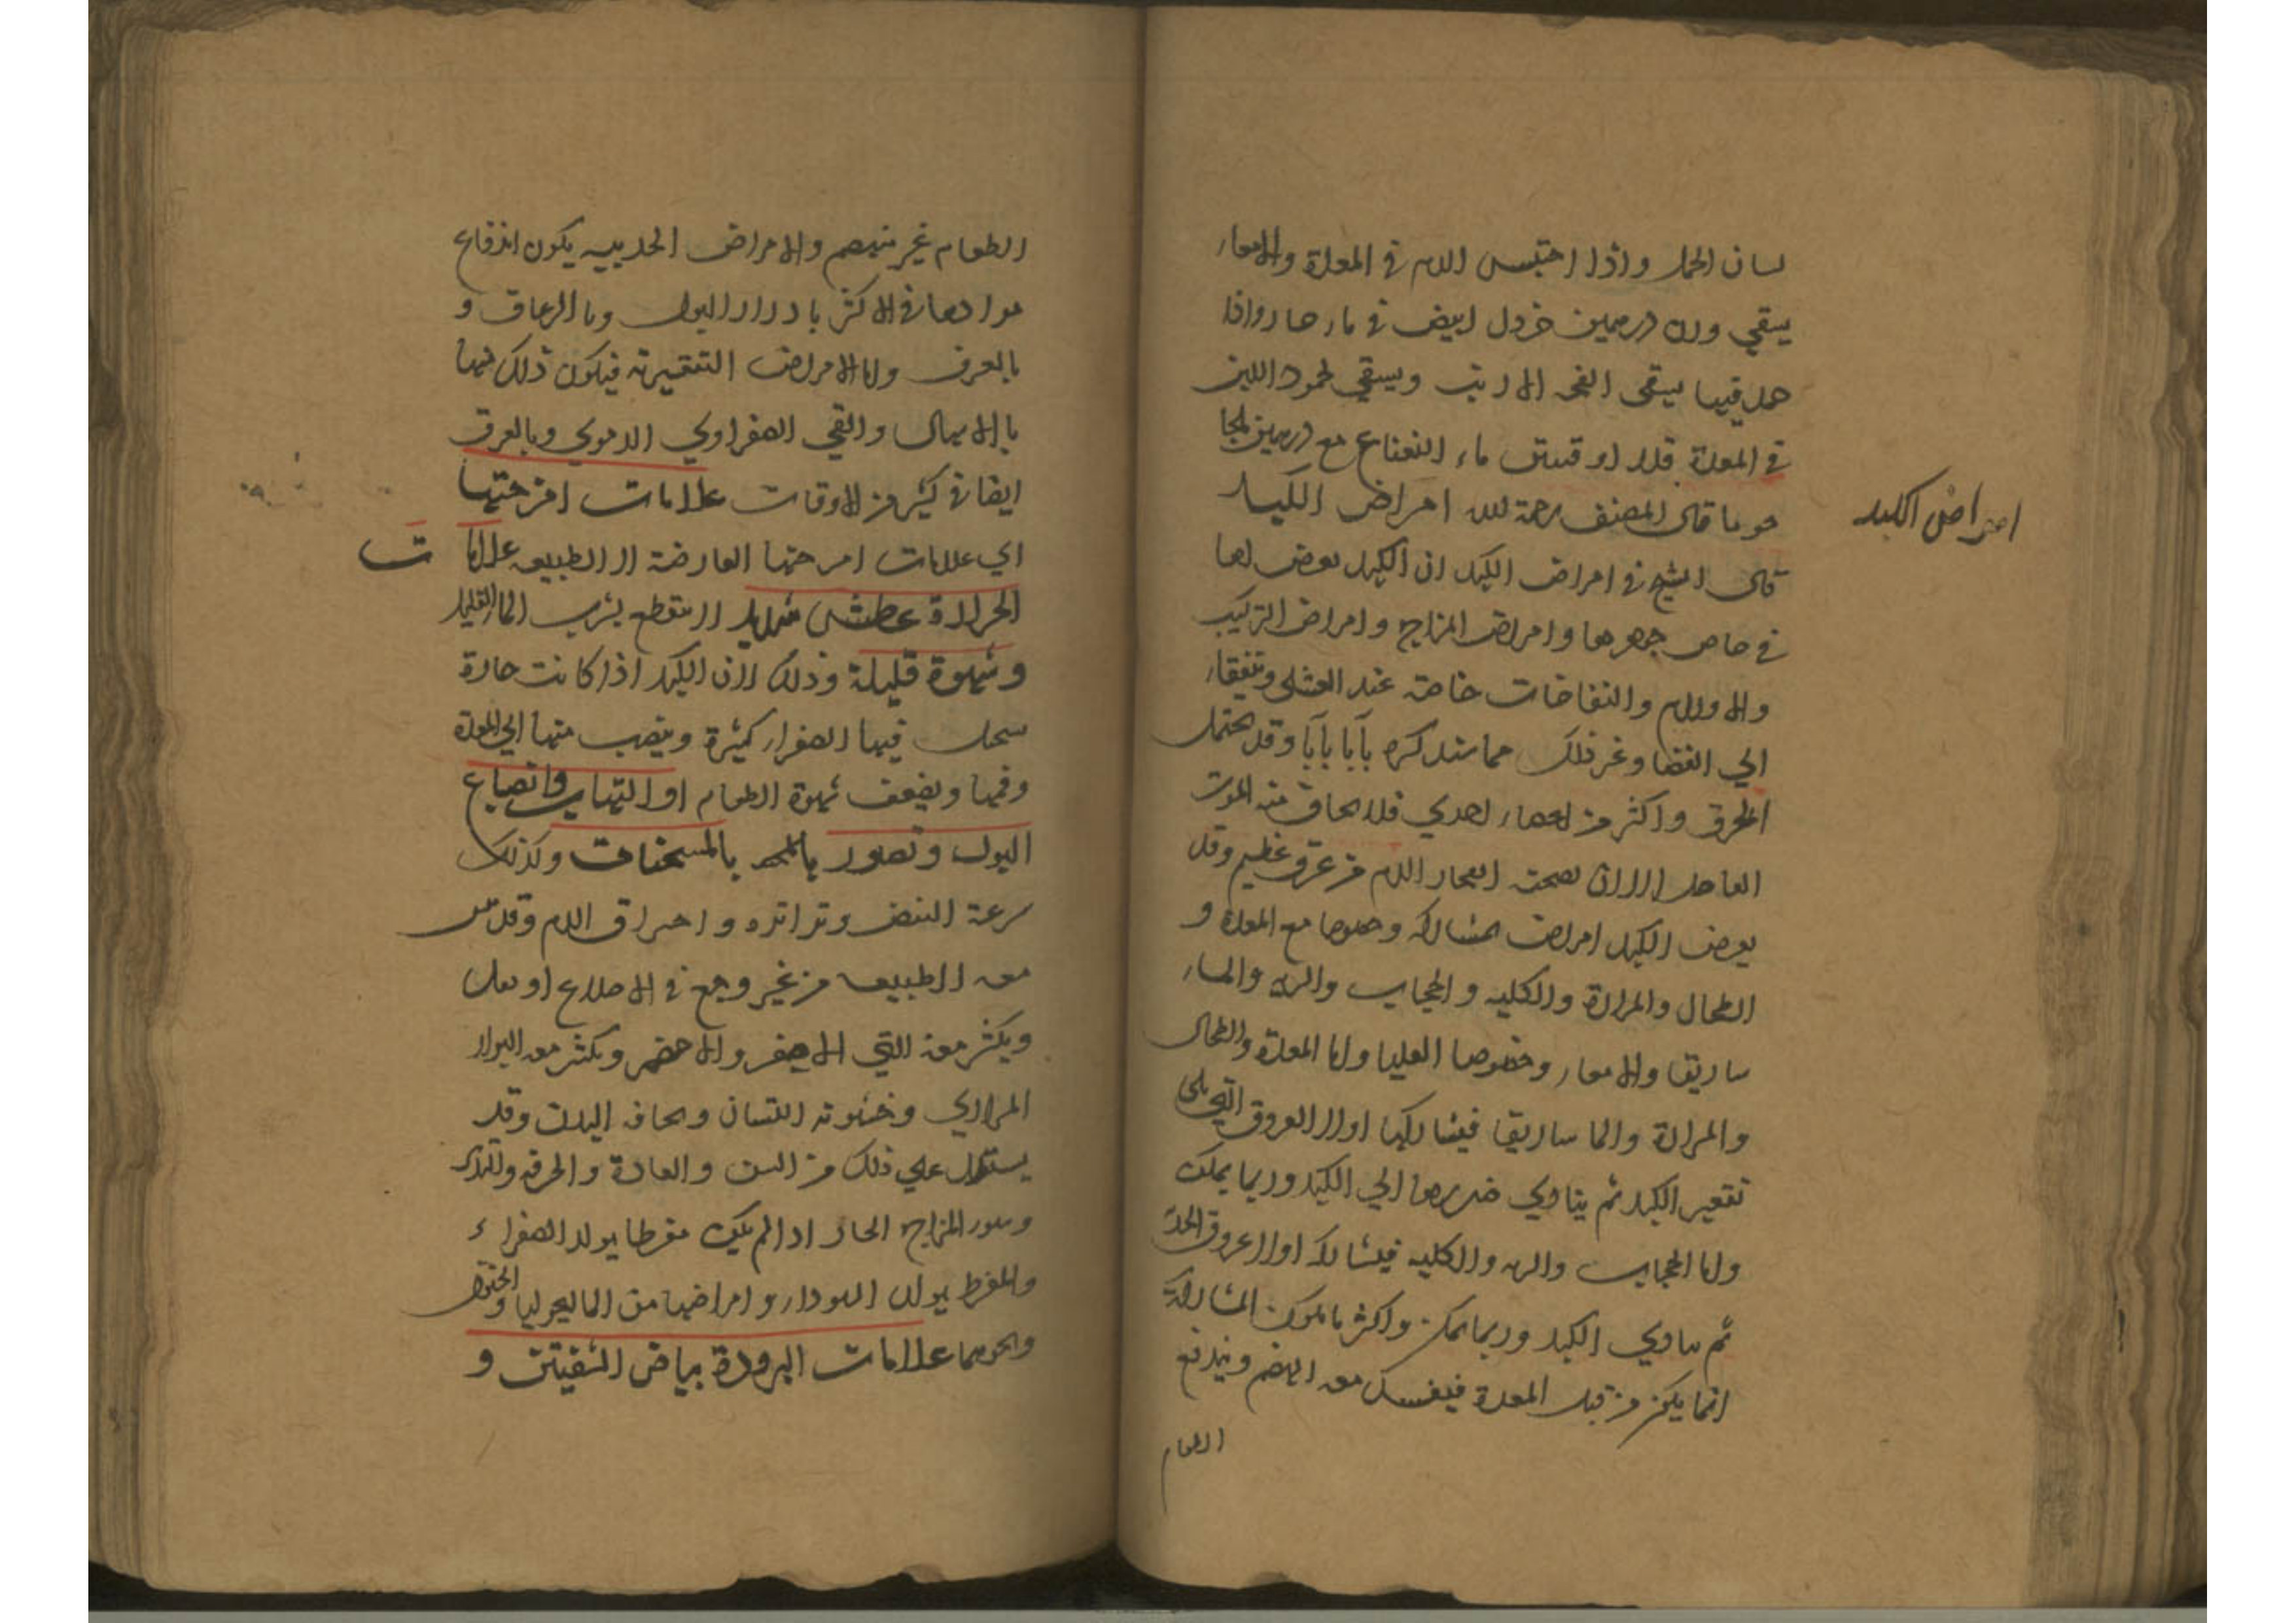 لسان الحمل واذا احتبس الدم في المعدة والامعاء
يسقي وزن درهمين خردل ابيض في ماء حار واذا
فيها يسقى انفحه الارنب ويسقي لجمود اللبن
في المعدة قدر اوقيتين ماء النعناع مع درهمين
هو ما قال المصنف رحمة لله امراض الكبد
امراض الكبد
قال الشيخ في امراض الكبد ان الكبد يعرض لها
في خاص جوهرها امراض المزاج وامراض التركيب
والاورام والنفاخات خاصة عند الغشاء
الي الفضا وغير ذلك مما سنذكره بابا بابا وقد يحتمل
الخرق واكثر من اعضاء اخري فلا يخاف منه الموت
العاجل الا ان يصحبه انفجار الدم من عرق عظيم وقد
يعرض الكبد امراض المشاركه وخصوصا مع المعدة و
الطحال والمرارة والكليه والحجاب والريه والما
ساريقا والامعاء وخصوصا العليا واما المعدة والطحال
والمرارة والماساريقا فيشاركها اولا العروق التي تلي
تقعير الكبد ثم يتادي ضررها الي الكبد وربما يمكن
واما الحجاب والريه والكليه فيشارك اولا عروق الحدبة
ثم يتادي الكبد وربما تمكن واكثر ما تكون المشاركة
انما يكن من قبل المعدة فيفسد معه الهضم ويندفع
الطعام
الطعام غير منهضم والامراض الحدبيه يكون اندفاع
موادها في الاكثر بادرار البول وبالرعاف و
بالعرق واما الامراض التقعيرية فيكون ذلك فيها
بالاسهال والقي الصفراوي الدموي وبالعرق
ايضا في كثير من الاوقات علامات امزجتها
اي علامات امزجتها العارضة لا الطبيعه علامات
الحرارة عطش شديد لا ينقطع بشرب الماء القليل
وشهوة قليلة وذلك لان الكبد اذا كانت حارة
فيها الصفراء كثيرة وينصب منها الي المعدة
وفمها ويضعف شهوة الطعام او التهاب وانصباغ
البول وتضرر بالمسخنات وكذلك
سرعة النبض وتواتره واحتراق الدم وقد
معه الطبيعه من غير وجع في الاضلاع او ثقل
ويكثر معه القي الاصفر والاخضر ويكثر معه البراز
المراري وخشونة اللسان ونحافه البدن وقد
يستدل علي ذلك من السن والعادة والحرفه والتدبير
وسوء المزاج الحار اذا لم يكن مفرطا يولد الصفراء
والمفرط يولد السوداء وامراضها من الماليخوليا والجنون
ونحوهما علامات البرودة بياض الشفتين و